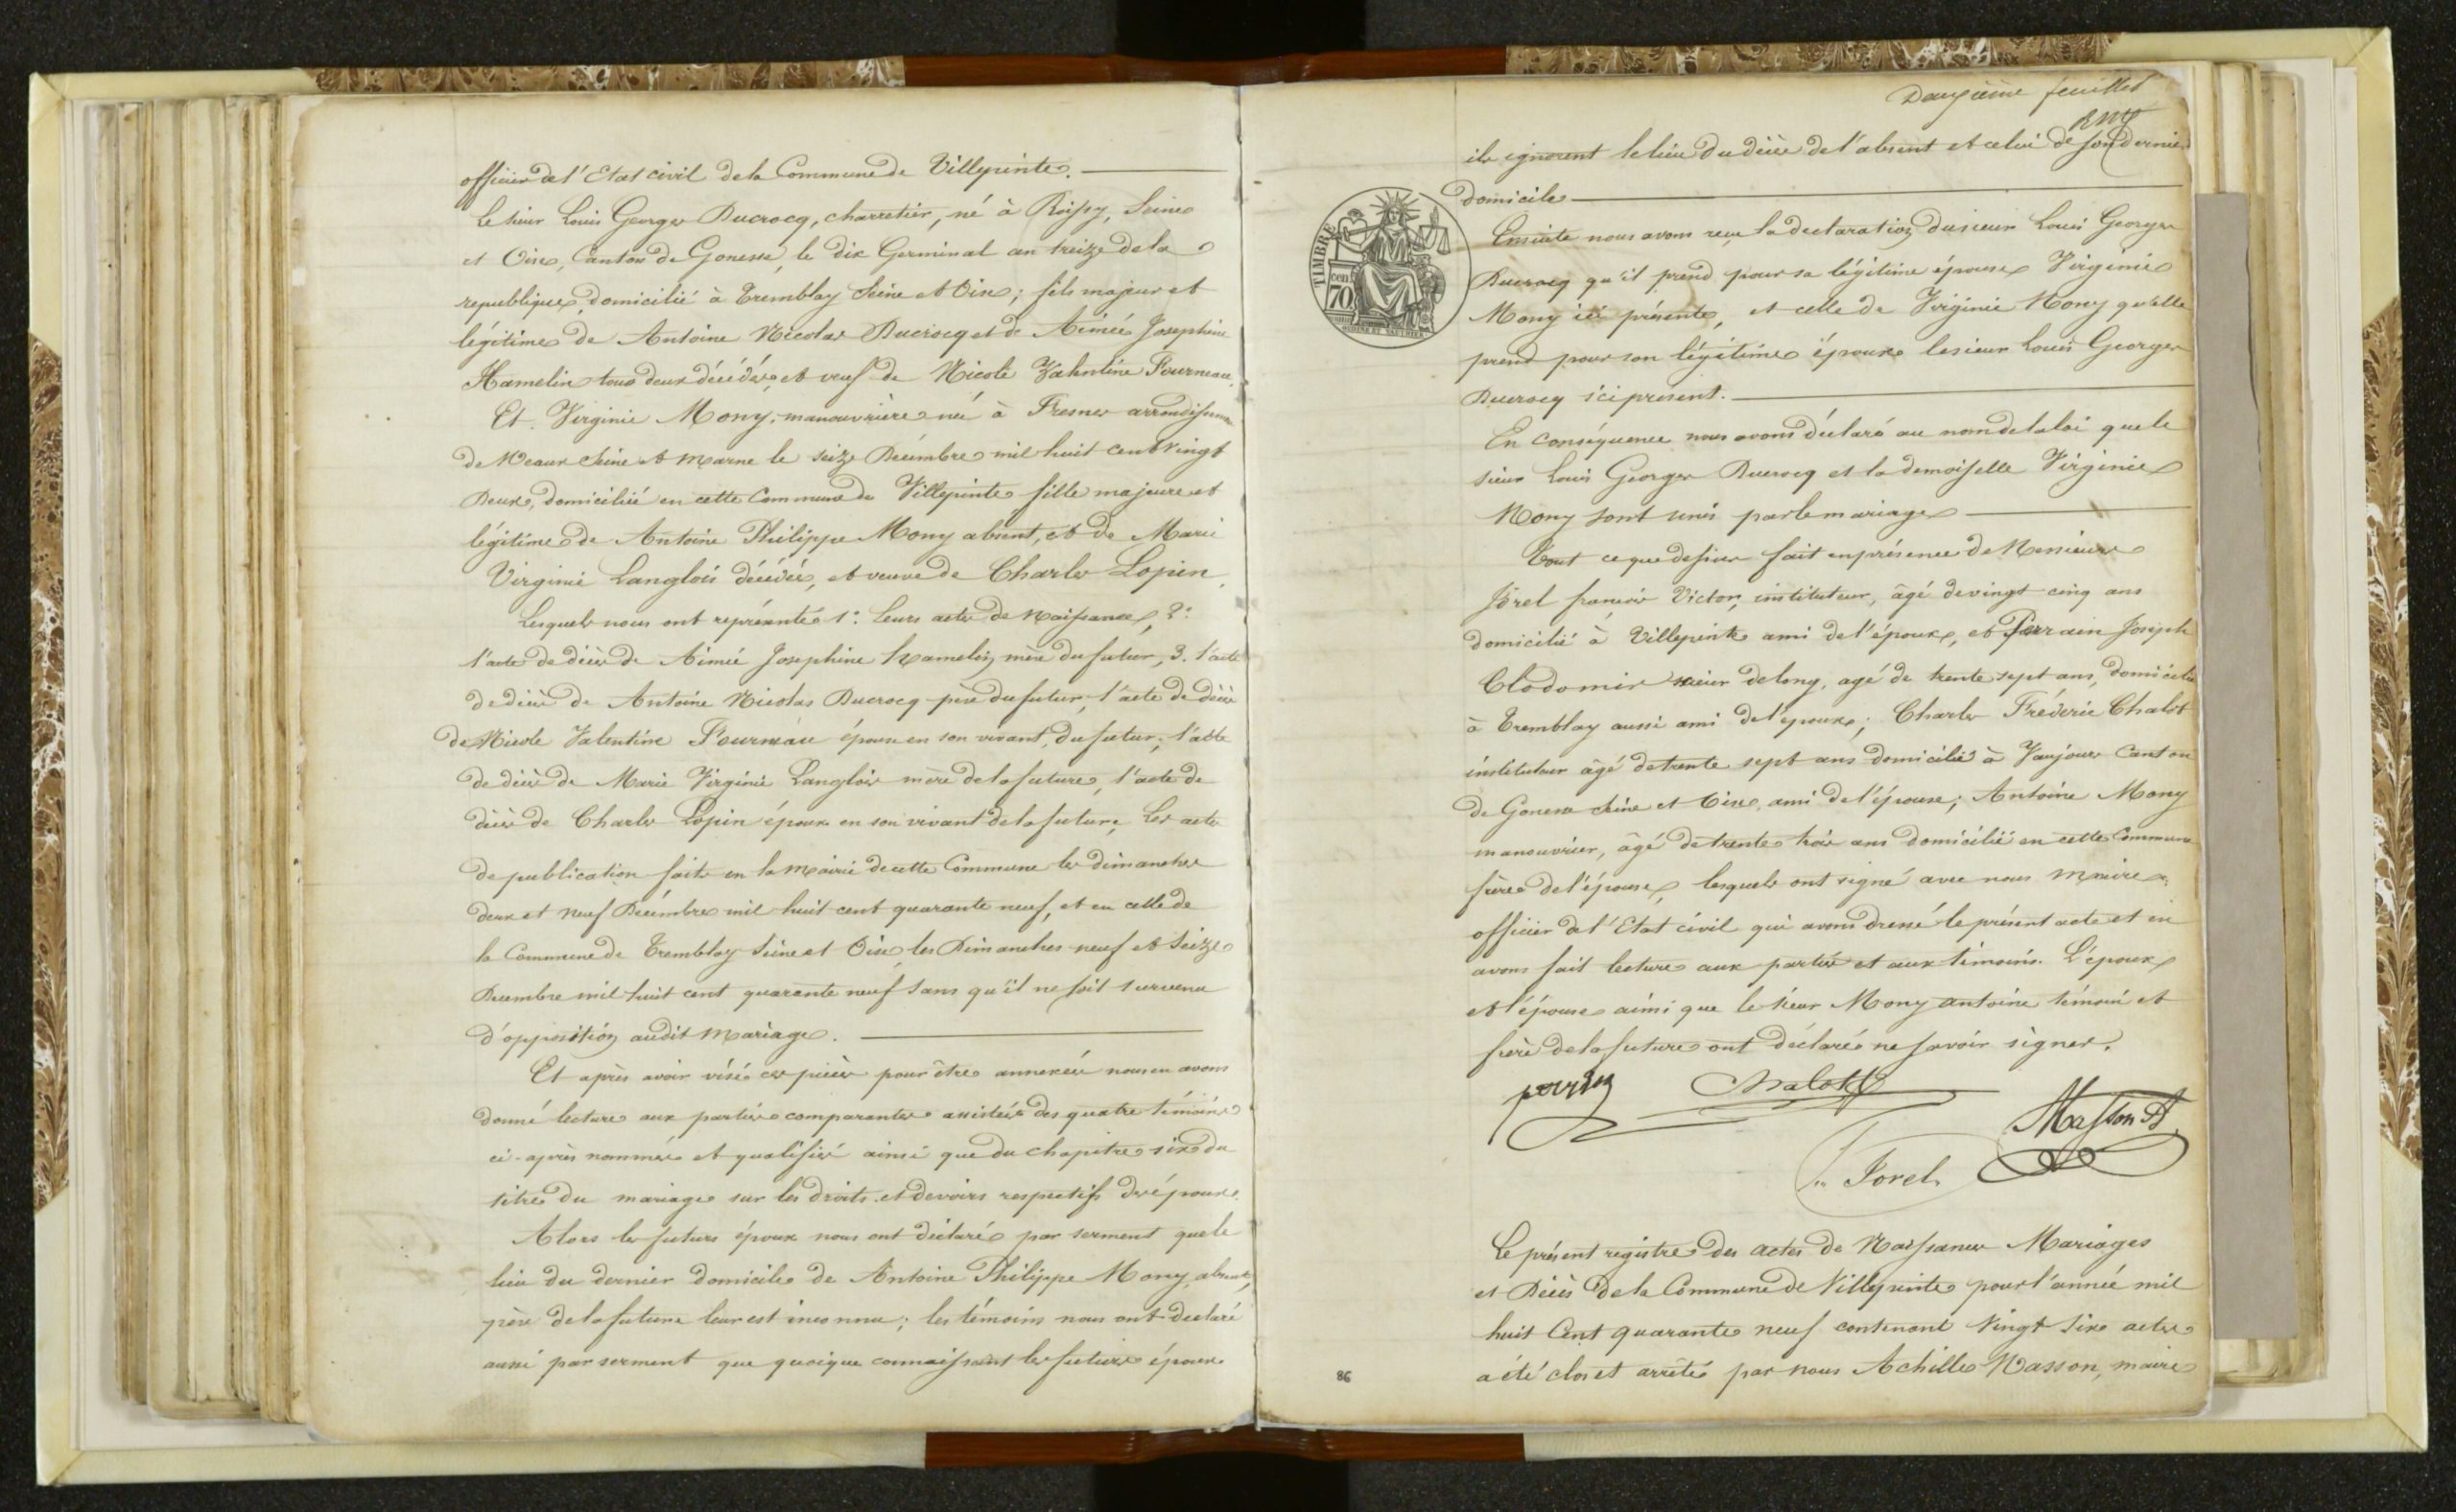 officier de l'Etat civil de la Commune de Villepinte.
Le sieur Louis Georges Ducrocq, charretier, né à Roissy, Seine
et Oise, Canton de Gonesse, le dix Germinal an treize de la
republique, domicilié à Tremblay Seine et Oise; fils majeur et
légitime de Antoine Nicolas Ducrocq et de Aimée Josephine
Hamelin tous deux décédés, et veuf de Nicole Valentine Fourneau,
Et Virginie Mony, manouvrière née à Fresnes arrondissement
de Meaux Seine et Marne le seize Décembre mil huit cent vingt
Deux, domiciliée en cette Commune de Villepinte fille majeure et
légitime de Antoine Philippe Mony absent, et de Marie
Virginie Langlois décédée, et veuve de Charles Lopin,
Lesquels nous ont représenté 1° Leurs actes de Naissance, 2°
l'acte de décès de Aimée Josephine hamelin mère du futur, 3. l'acte
de décès de Antoine Nicolas Ducrocq père du futur, l'acte de décès
de Nicole Valentine Fourneau épouse en son vivant, du futur; l'acte
de décès de Marie Virginie Langlois mère de la future, l'acte de
décès de Charles Lopin époux en son vivant de la future, Les actes
de publication faits en la Mairie de cette Commune les dimanches
deux et neuf Décembre mil huit cent quarante neuf, et en celle de
la Commune de Tremblay Seine et Oise les Dimanches neuf et Seize
Decembre mil huit cent quarante neuf sans qu'il ne soit survenu
d'opposition audit Mariage.
Et après avoir visé ces pièces pour être annexées nous en avons
donné lecture aux parties comparantes assistées des quatre témoins
ci-après nommés et qualifiés ainsi que du chapitre six du
titre du mariage sur les droits et devoirs respectifs des époux.
Alors les futurs époux nous ont déclaré par serment que le
lieu du dernier domicile de Antoine Philippe Mony, absent,
père de la future leur est inconnu; les témoins nous ont declaré
aussi par serment que quoique connaissant les futurs époux
Deuxième feuillet
ils ignorent le lieu du décès de l'absent et celui de son dernier
domicile
TIMBRE
cen
70
Ensuite nous avons reçu la declaration du sieur Louis Georges
Ducrocq qu'il prend pour sa légitime épouse Virginie
Mony ici présente, et celle de Virginie Mony qu'elle
prend pour son légitime époux le sieur Louis Georges
Ducrocq ici present.
En conséquence nous avons déclaré au nom de la loi que le
sieur Louis Georges Ducrocq et la demoiselle Virginie
Mony sont unis par le mariage
Tout ce que dessus fait en présence de Messieurs
Forel francois Victor, instituteur, âgé de vingt cinq ans
domicilié à Villepinte ami de l'époux, et Perrain Joseph
Clodomir scieur de long, agé de trente sept ans, domicilié
à Tremblay aussi ami de l'époux; Charles Fréderic Chalot
instituteur âgé de trente sept ans domicilié à Vaujours Canton
de Gonesse Seine et Oise, ami de l'épouse; Antoine Mony
manouvrier, âgé de trente trois ans domicilié en cette Commune
frère de l'épouse, lesquels ont signé avec nous Maire
officier de l'Etat civil qui avons dressé le présent acte et en
avons fait lecture aux parties et aux témoins. L'époux
et l'épouse ainsi que le sieur Mony Antoine témoin et
frère de la future ont déclaré ne savoir signer.
Chalot
Masson A
Forel
Le présent registre des actes de Naissances Mariages
et Décès de la Commune de Villepinte pour l'année mil
huit Cent quarante neuf contenant Vingt Six actes
a été clos et arrêté par nous Achille Masson, maire
86